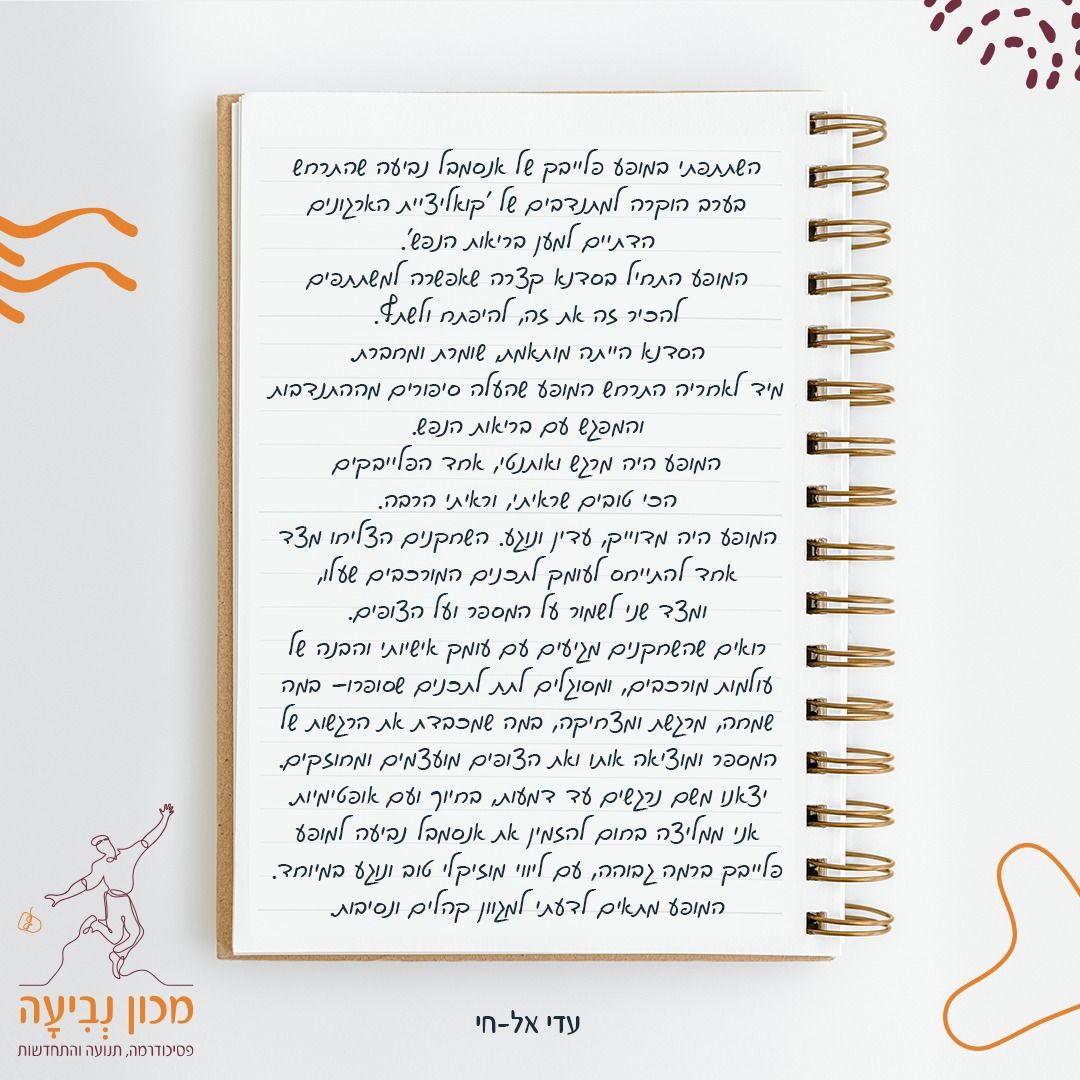 השתתפתי במופע פלייבק של אנסמבל נביעה שהתרחש
בערב הוקרה למתנדבים של 'קואליציית הארגונים
הדתיים למען בריאות הנפש'.
המופע התחיל בסדנא קצרה שאפשרה למשתתפים
להכיר זה את זה, להיפתח ולשתף.
הסדנא הייתה מותאמת, שומרת ומחברת.
מיד לאחריה התרחש המופע שהעלה סיפורים מההתנדבות
והמפגש עם בריאות הנפש.
המופע היה מרגש ואותנטי, אחד הפלייבקים
הכי טובים שראיתי, וראיתי הרבה.
המופע היה מדוייק, עדין ונוגע. השחקנים הצליחו מצד
אחד להתייחס לעומק לתכנים המורכבים שעלו,
ומצד שני לשמור על המספר ועל הצופים.
רואים שהשחקנים מגיעים עם עומק אישיותי והבנה של
עולמות מורכבים, ומסוגלים לתת לתכנים שסופרו– במה
שמחה, מרגשת ומצחיקה, במה שמכבדת את הרגשות של
המספר ומוציאה אותו ואת הצופים מועצמים ומחוזקים.
יצאנו משם נרגשים עד דמעות, בחיוך ועם אופטימיות.
אני ממליצה בחום להזמין את אנסמבל נביעה למופע
פלייבק ברמה גבוהה, עם ליווי מוזיקלי טוב ונוגע במיוחד.
המופע מתאים לדעתי למגוון קהלים ונסיבות.
עדי אל-חי
מכון נְבִיעָה
פסיכודרמה, תנועה והתחדשות